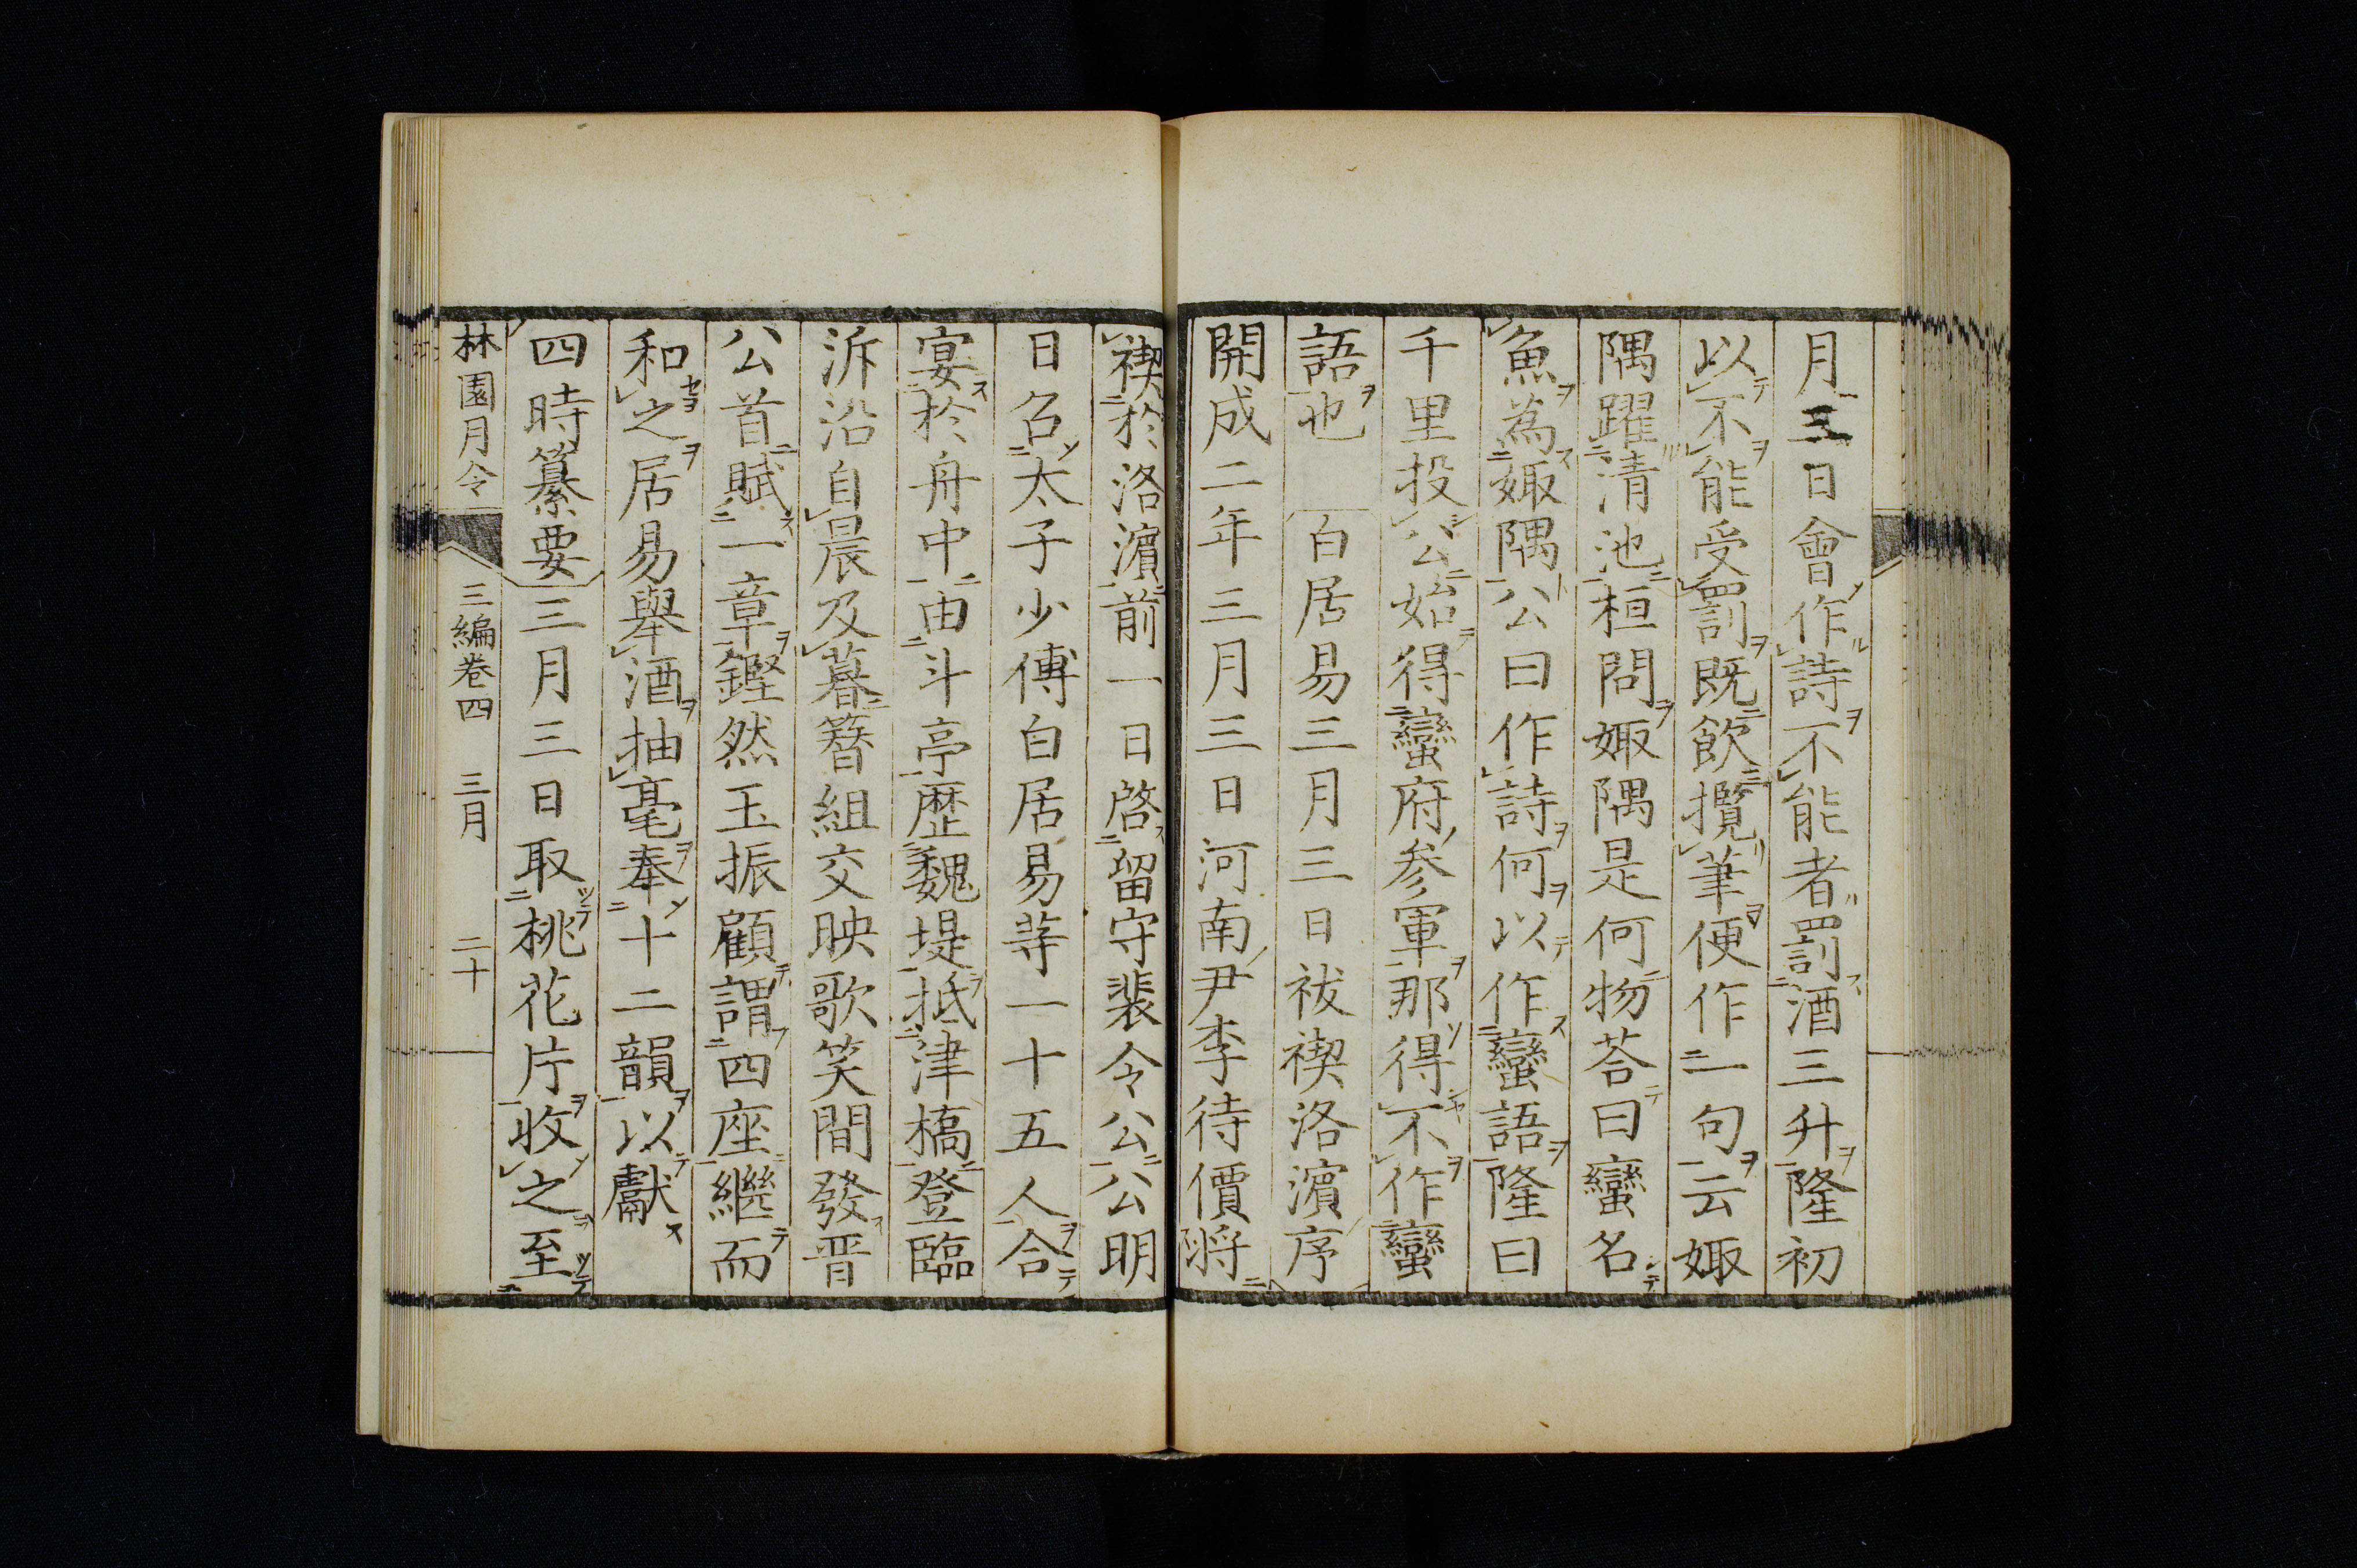 月三日會作詩不能者罰酒三升隆初
以不能受罰既飲攬筆便作一句云娵
隅躍清池桓問娵隅是何物荅曰蠻名
魚為娵隅公曰作詩何以作蠻語隆曰
千里投公始得蠻府参軍那得不作蠻
語也 白居易三月三日祓禊洛濵序
開成二年三月三日河南尹李待價将
禊於洛濵前一日啓留守裴令公公明
日召太子少傅白居易等一十五人合
宴於舟中由斗亭歴魏堤抵津橋登臨
泝沿自晨及暮簪組交映歌笑間發晋
公首賦一章鏗然玉振顧謂四座繼而
和之居易舉酒抽毫奉十二韻以獻
四時纂要三月三日取桃花片收之至
林園月令 三編巻四 三月 二十